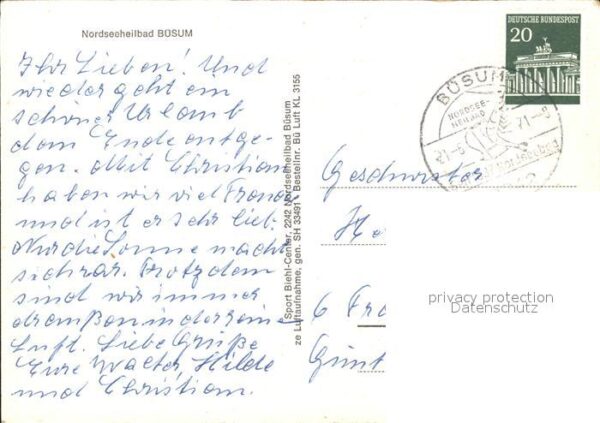 Nordseeheilbad BÜSUM
Ihr Lieben! Und
wieder geht ein
schöner Urlaub
dem Ende entge-
gen. Mit Christian
haben wir viel Freude
und ist er sehr lieb.
Nur die Sonne macht
sich rar. Trotzdem
sind wir immer
draußen in der reinen
Luft. Liebe Grüße
Eure Walter, Hilde
und Christian.
Sport Biehl-Center, 2242 Nordseeheilbad Büsum
ze Luftaufnahme, gen. SH 33491 - Bestellnr. Bü Luft KL 3155
DEUTSCHE BUNDESPOST
20
BÜSUM
NORDSEE-
HEILBAD
21.-6
71.-8
Geschwister
He
6 Fra
Günt
privacy protection
Datenschutz